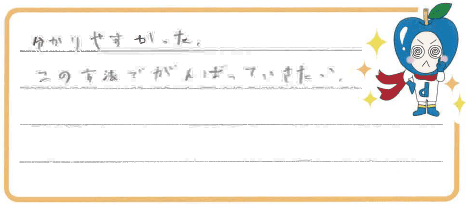 分かりやすかった。
この方法でがんばっていきたい。